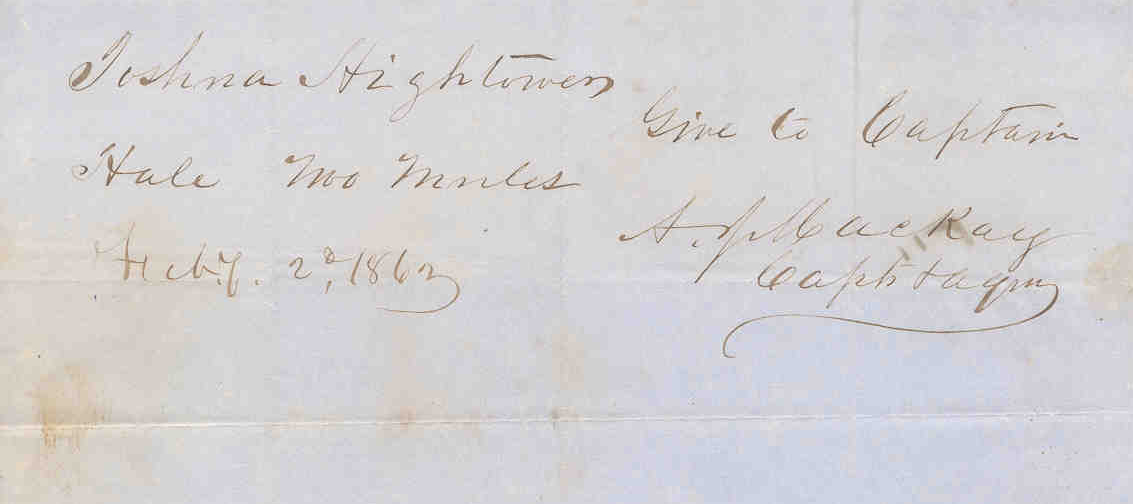 Joshua Hightower
Give to Captain
Hale Two Mules
A. J. Mackay
Feby. 2d, 1862
Capt & aqm